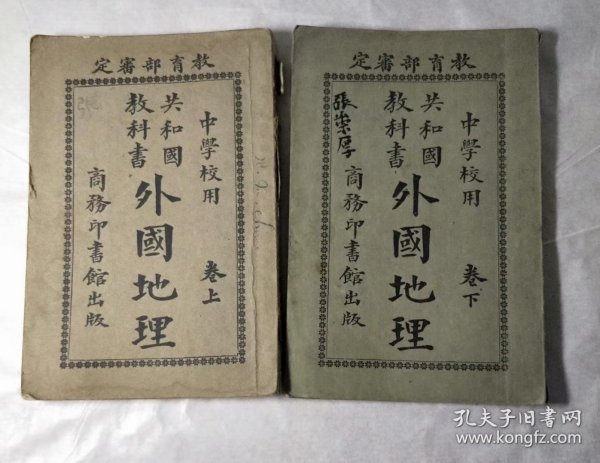 教育部審定
中學校用 卷上
共和國
教科書
外國地理
商務印書館出版
教育部審定
中學校用 卷下
共和國
教科書
外國地理
張崇厚
商務印書館出版
孔夫子旧书网
www.kongfz.com